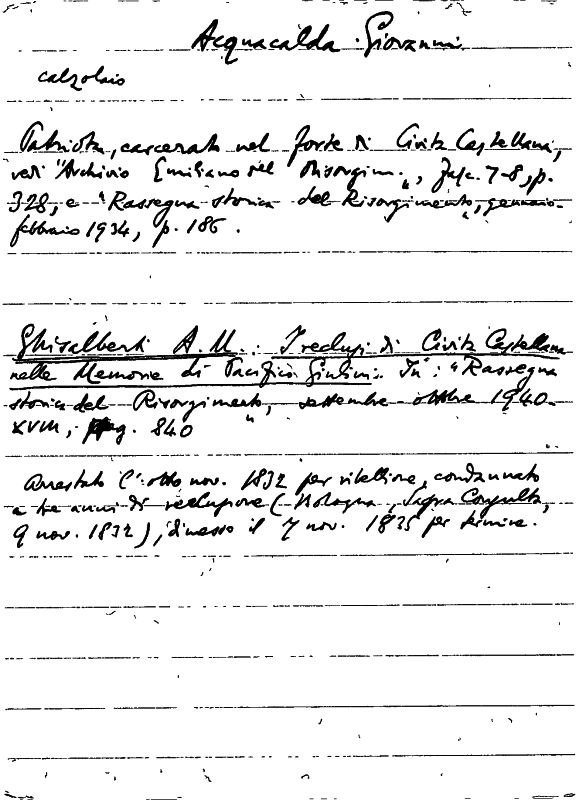 Acquacalda Giovanni
calzolaio
Patriota, carcerato nel forte di Civita Castellana,
vedi "Archivio Emiliano del Risorgim.", fasc. 7-8, p.
328, e "Rassegna storica del Risorgimento", gennaio-
febbraio 1934, p. 186.
Ghisalberti A. M.: I reclusi di Civita Castellana
nelle Memorie di Pacifico Giulini. In: "Rassegna
storica del Risorgimento", settembre-ottobre 1940-
XVIII, pag. 840
Arrestato l'otto nov. 1832 per ribellione, condannato
a tre anni di reclusione (Bologna, Sagra Consulta,
9 nov. 1832), dimesso il 7 nov. 1835 per termine.